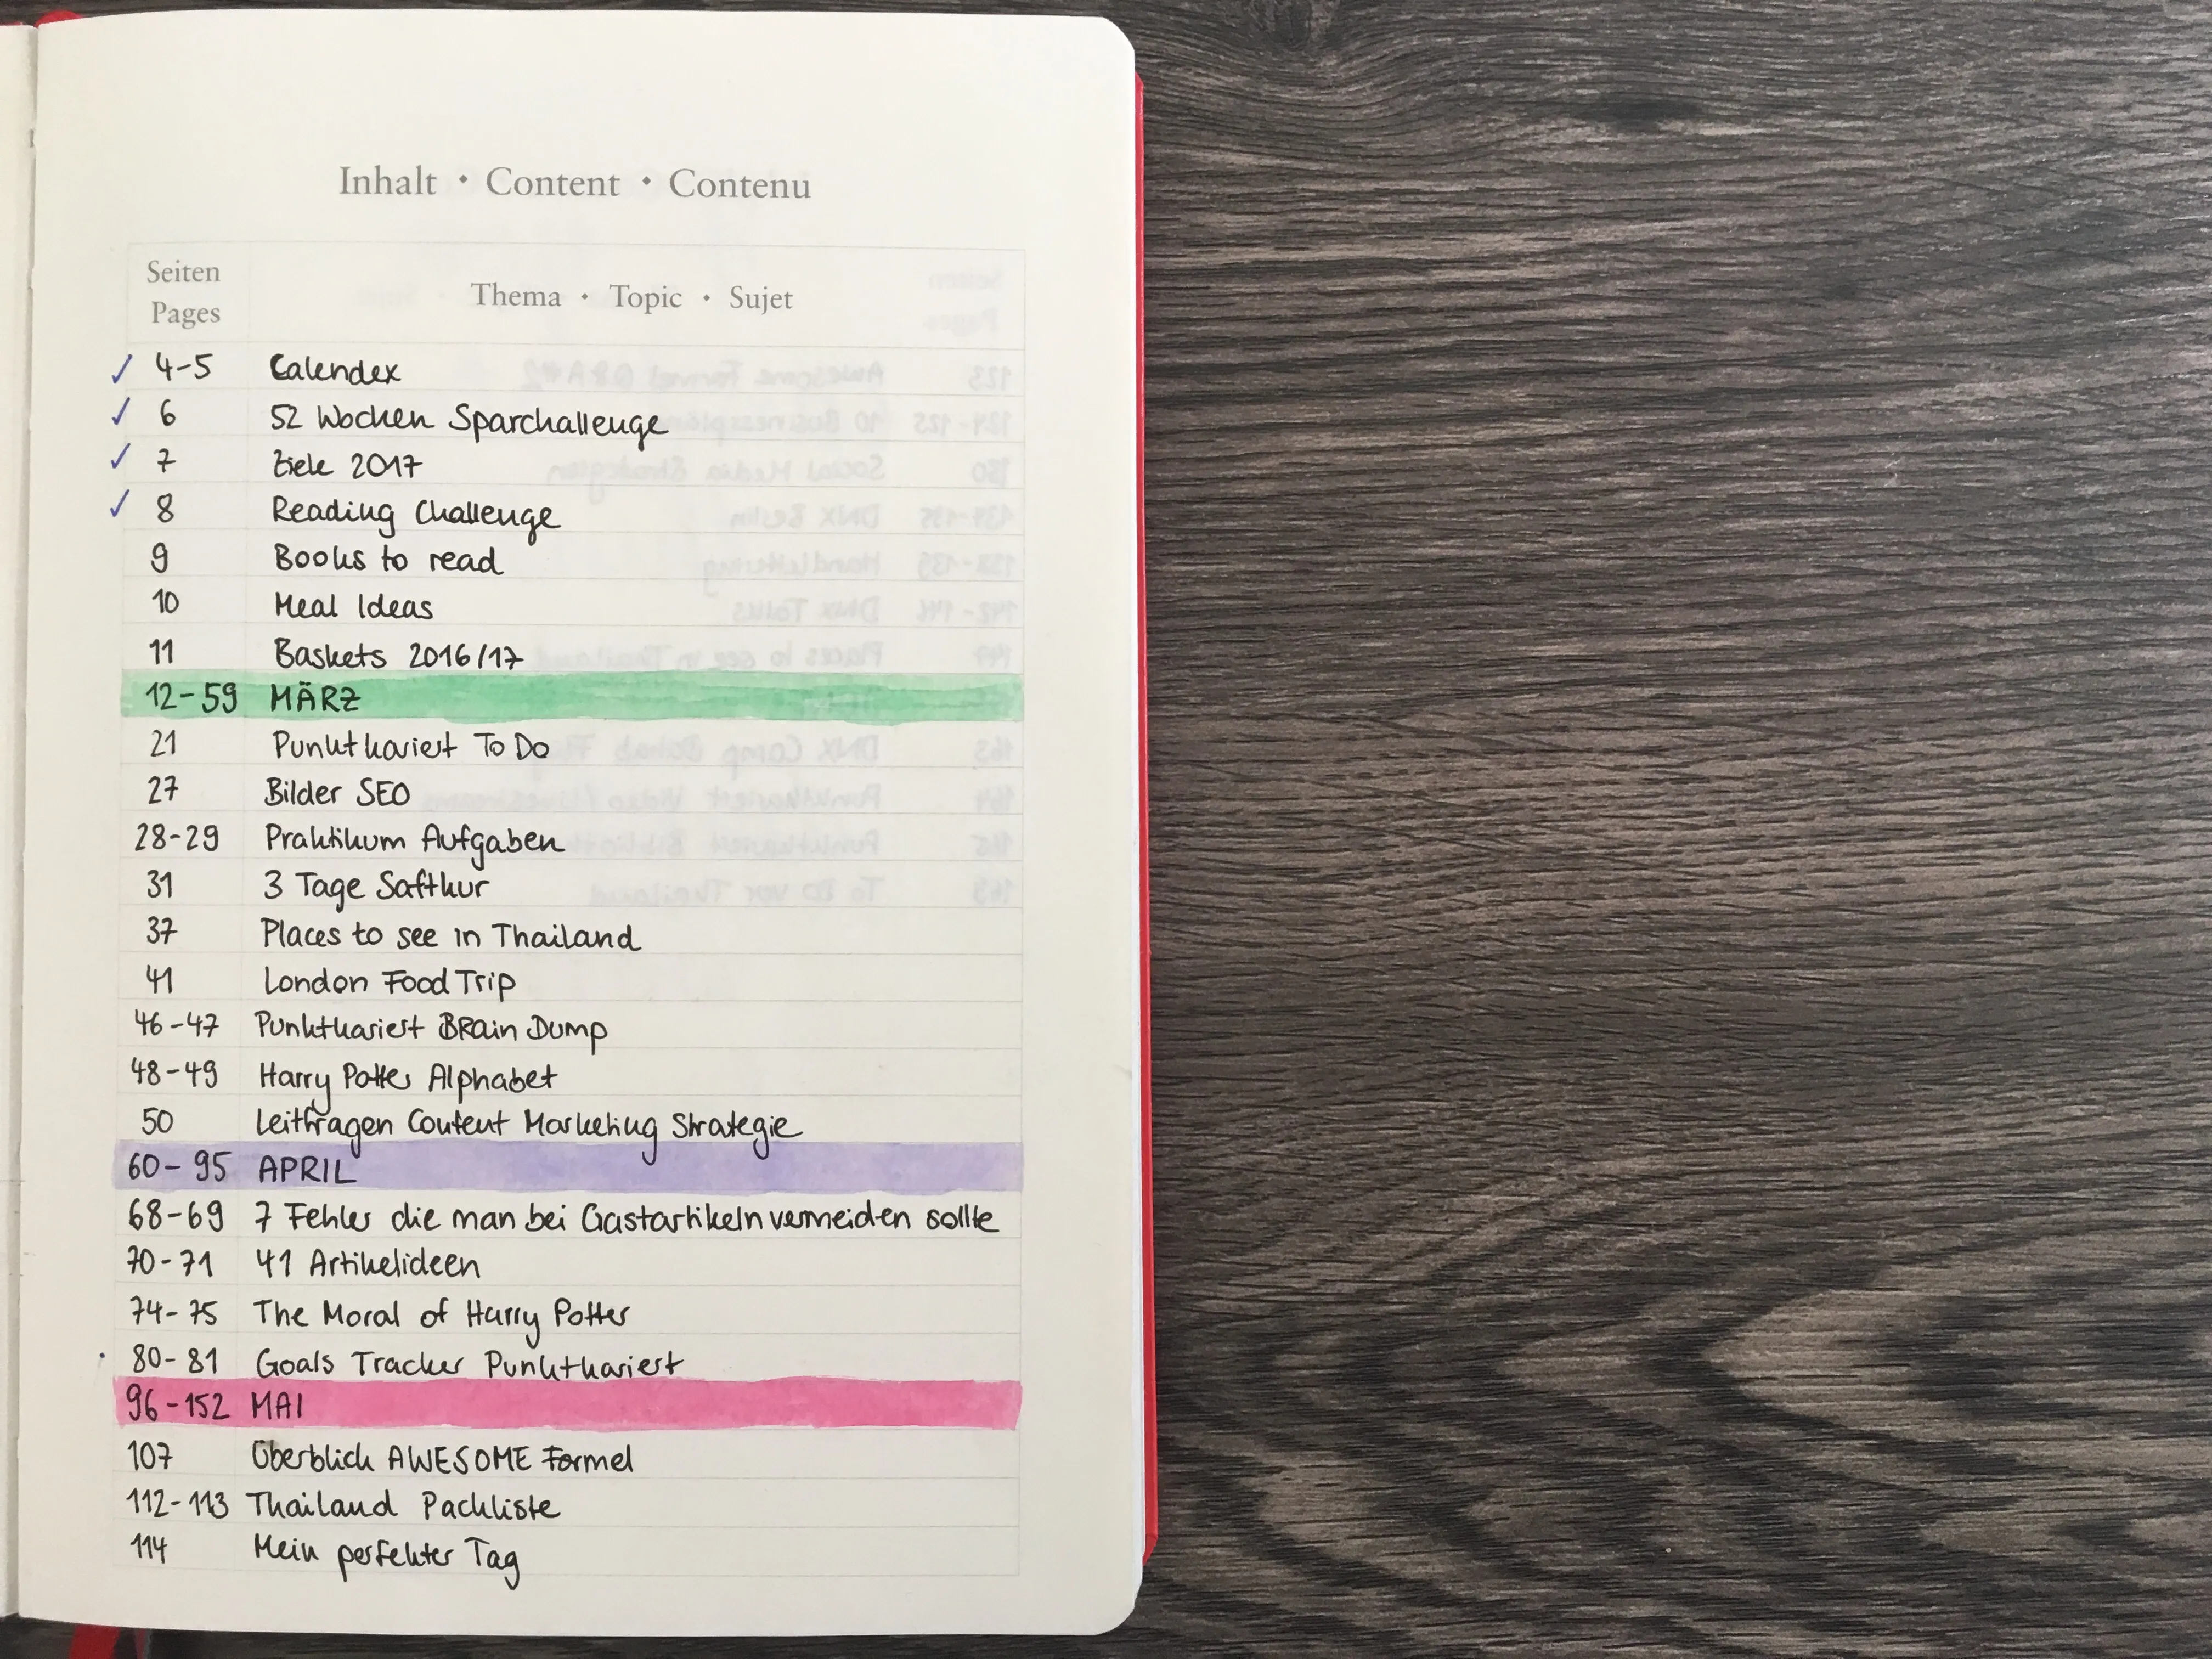 Inhalt • Content • Contenu
Seiten
Pages
Thema • Topic • Sujet
✓ 4-5 Calendex
✓ 6 52 Wochen Sparchallenge
✓ 7 Ziele 2017
✓ 8 Reading Challenge
9 Books to read
10 Meal Ideas
11 Baskets 2016/17
12-59 MÄRZ
21 Punktkariert To Do
27 Bilder SEO
28-29 Praktikum Aufgaben
31 3 Tage Saftkur
37 Places to see in Thailand
41 London Food Trip
46-47 Punktkariert BRain Dump
48-49 Harry Potter Alphabet
50 Leitfragen Content Marketing Strategie
60-95 APRIL
68-69 7 Fehler die man bei Gastartikeln vermeiden sollte
70-71 41 Artikelideen
74-75 The Moral of Harry Potter
80-81 Goals Tracker Punktkariert
96-152 MAI
107 Überblick AWESOME Formel
112-113 Thailand Packliste
114 Mein perfekter Tag